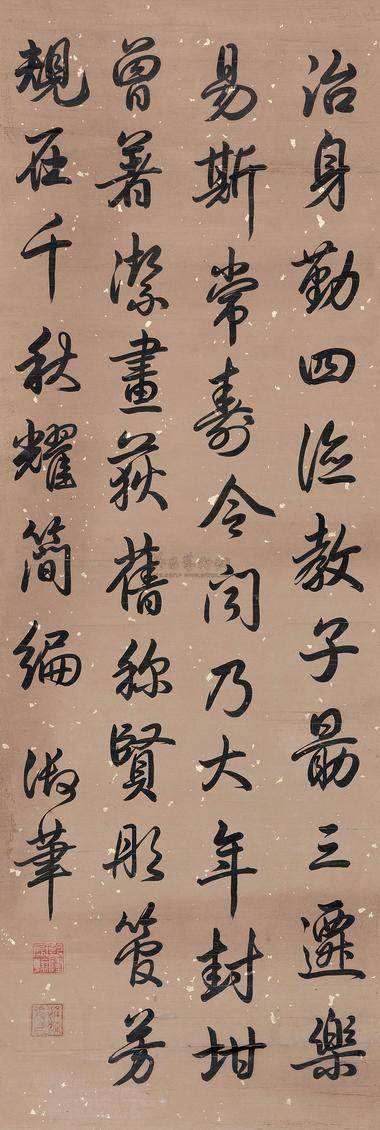 治身勤四德教子勗三遷樂
易斯常壽令問乃大年封坩
曾著潔畫荻舊称賢彤管芳
規在千秋耀簡編 御筆